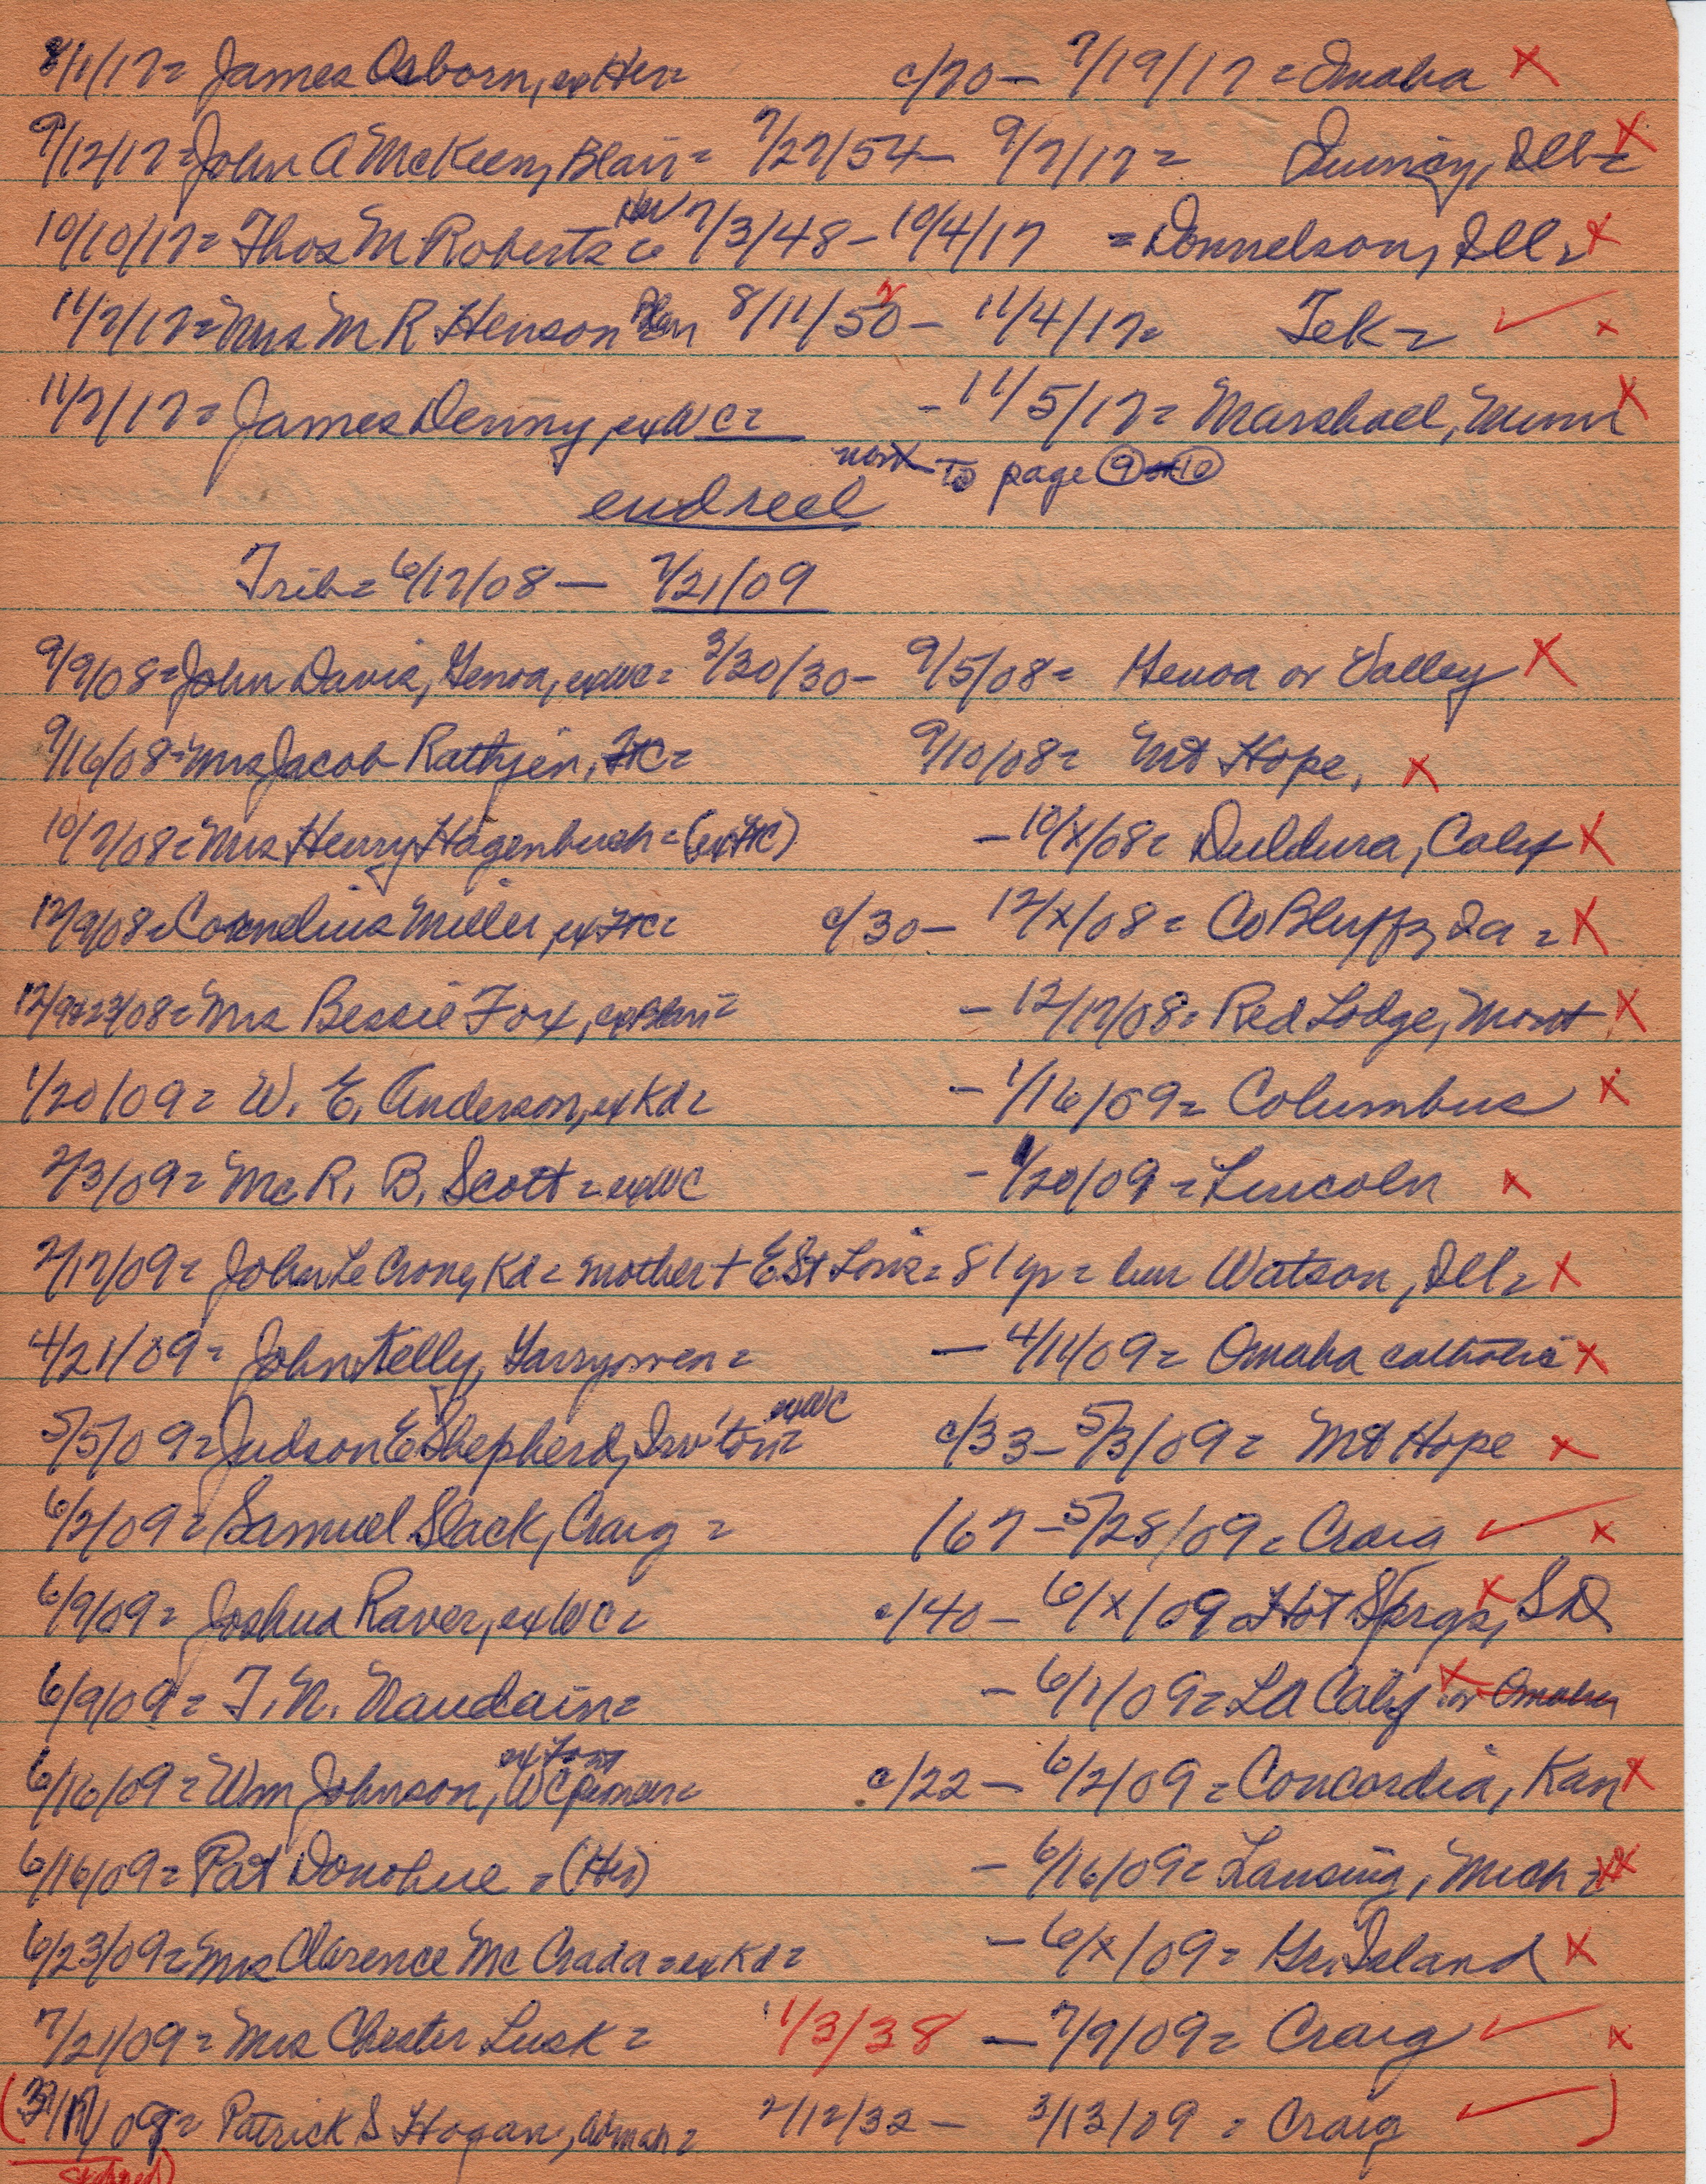 8/1/17= James Osborn, ex Her= c/70 – 7/19/17 = Omaha X
9/12/17= John A McKeen, Blair= 7/27/54 – 9/7/17= Quincy, Ill= X
10/10/17= Thos M Roberts Her 7/3/48 – 10/4/17 = Donnelson, Ill= X
11/7/17= Mrs M R Henson Blair 8/11/50 – 11/4/17= Tek= ✓ x
11/7/17= James Denny, ex WC= – 11/5/17= Marshall, Minn X
next to page 9 10
end reel
Trib= 6/17/08 – 7/21/09
9/9/08= John Davis, Genoa, exWC= 3/30/30 – 9/5/08= Genoa or Valley X
9/16/08= Mrs Jacob Rathjen, FtC= 9/10/08= Mt Hope, X
10/7/08= Mrs Henry Hagenbuch= (exFtC) – 10/x/08= , Calif X
12/9/08= Cornelius Miller, exFtC= c/30 – 12/x/08= Co Bluffs, Ia = X
12/9+23/08= Mrs Bessie Fox, exBlair= – 12/17/08= Red Lodge, Mont X
1/20/09= W. E. Anderson, ex Kd= – 1/16/09= Columbus X
2/3/09= Mc R. B. Scott = exWC – 1/20/09 = Lincoln X
2/17/09= John Le Crone, Kd= mother + E St Louis= 81 yr= bur Watson, Ill= X
4/21/09= John Kelly, Garryowen = – 4/11/09= Omaha catholic X
5/5/09= Judson E Shepherd, Irv'ton= exWC c/33 – 5/3/09= Mt Hope X
6/2/09= Samuel Slack, Craig = /67 – 5/28/09= Craig ✓ x
6/9/09= Joshua Raver, exWC= c/40 – 6/x/09= Hot Sprgs, SD X
6/9/09= T. N. Naudain= – 6/1/09= LA Calif X or Omaha
6/16/09= Wm Johnson, ex Font WC pioneer= c/22 – 6/2/09 = Concordia, Kan X
6/16/09= Pat Donohue = (Her) – 6/16/09= Lansing, Mich = XX
6/23/09= Mrs Clarence Mc Crada = ex Kd= – 6/x/09= Gr. Island X
7/21/09= Mrs Chester Lusk = 1/3/38 – 7/9/09= Craig ✓ x
( /09= Patrick S Hogan, = 2/12/32 – 3/13/09 = Craig ✓ )